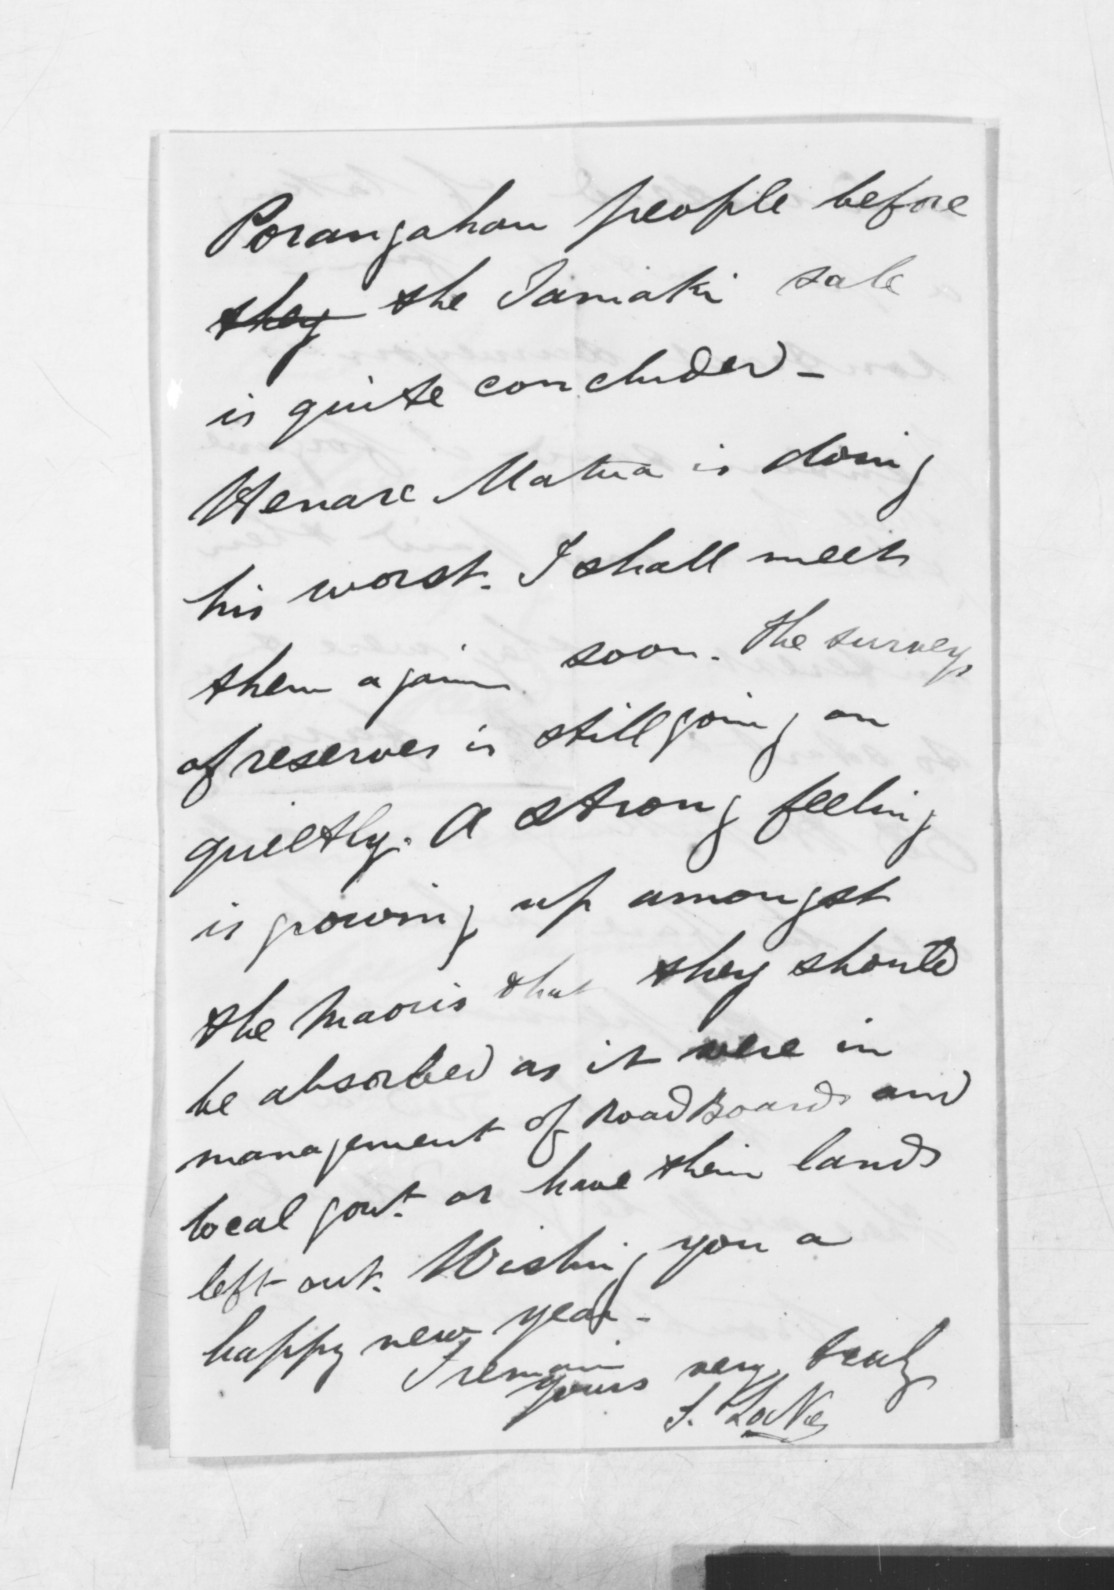 Porangahau people before
they the Tamaki sale
is quite concluded -
Henare Matua is doing
his worst. I shall meet
them again soon. The surveys
of reserves is still going on
quietly. A strong feeling
is growing up amongst
the Maoris that they should
be absorbed as it were in
management of Road Boards and
local govt. or have their lands
left out. Wishing you a
happy new year -
I remain
yours very truly
S. Locke